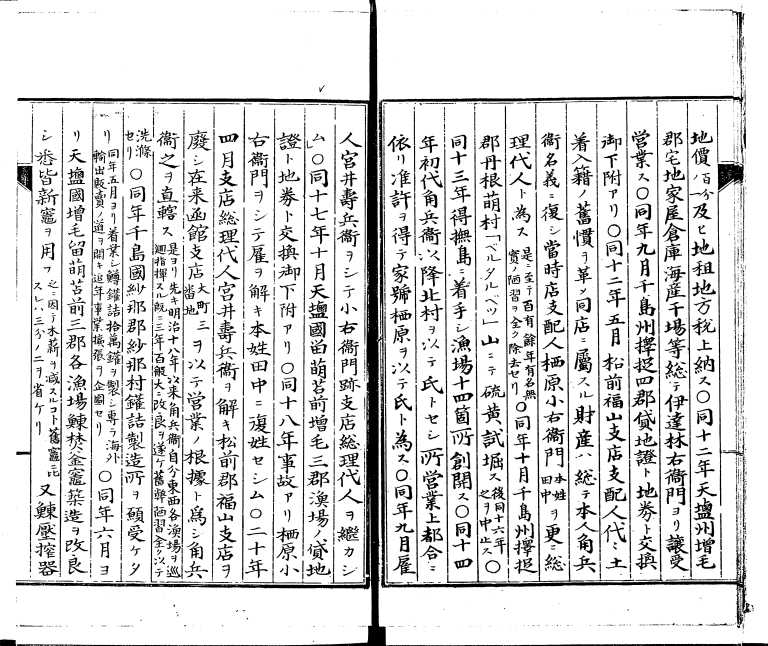 地價(百分ノ一)及ヒ地租地方税上納ス〇同十二年天塩州増毛
郡宅地家屋倉庫海産干場等総テ伊達林右衞門ヨリ譲受
営業ス〇同年九月千島州擇捉四郡貸地證ト地券ト交換
御下附アリ〇同十二年五月松前福山支店支配人代々土
着入籍ノ舊慣ヲ革メ同店ニ屬スル財産ハ総テ本人角兵
衞名義ニ復シ當時店支配人栖原小右衞門本姓田中ヲ更ニ総
理代人ト為ス是ニ至テ百有餘年有名無實ノ陋習ヲ全ク除去セリ〇同年十月千島州擇捉
郡丹根萌村「ベルタルベツ」山ニテ硫黄試堀ス後同十六年之ヲ中止ス〇
同十三年得撫島ニ着手シ漁場十四箇所創開ス〇同十四
年初代角兵衞以降北村ヲ以テ氏トセシ所営業上都合ニ
依リ准許ヲ得テ家號栖原ヲ以テ氏ト為ス〇同年九月雇
人宮井壽兵衞ヲシテ小右衞門跡支店総理代人ヲ継カシ
ム〇同十七年十月天塩國留萌苫前増毛三郡漁場ノ貸地
證ト地券ト交換御下附アリ〇同十八年事故アリ栖原小
右衞門ヲシテ雇ヲ解キ本姓田中ニ復姓セシム〇二十年
四月支店総理代人宮井壽兵衞ヲ解キ松前郡福山支店ヲ
廃シ在来函館支店大町三番地ヲ以テ営業ノ根據ト為シ角兵
衞之ヲ直轄ス是ヨリ先キ明治十八年以来角兵衞自分東西各漁場ヲ巡廻指揮スル既ニ三年百般大ニ改良ヲ遂ケ舊弊陋習全ク以テ
洗滌セリ〇同年千島國紗那郡紗那村鑵詰製造所ヲ願受ケタ
リ同年五月ヨリ着業シ鱒鑵詰拾萬鑵ヲ製シ専ラ海外輸出販賣ノ道ヲ開キ追年事業擴張ヲ企圖セリ〇同年六月ヨ
リ天塩國増毛留萌苫前三郡各漁場鰊𥹥釜竈築造ヲ改良
シ悉皆新竈ヲ用フ之ニ因テ木薪ヲ減スルコト舊竈ニ比スレハ三分ノ二ヲ省ケリ又鰊壓搾器